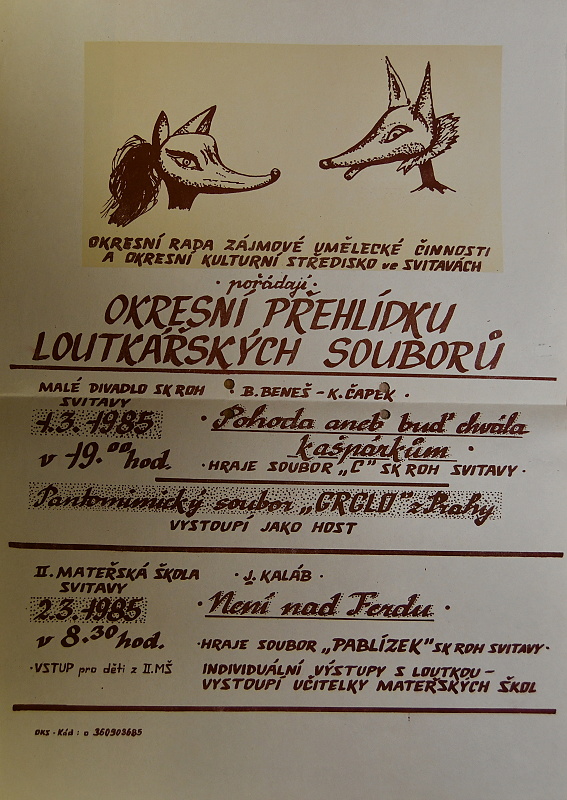 OKRESNÍ RADA ZÁJMOVÉ UMĚLECKÉ ČINNOSTI
A OKRESNÍ KULTURNÍ STŘEDISKO ve SVITAVÁCH
· pořádají ·
OKRESNÍ PŘEHLÍDKU
LOUTKÁŘSKÝCH SOUBORŮ
MALÉ DIVADLO SK ROH
SVITAVY
1.3. 1985
v 19.00 hod.
· B. BENEŠ - K. ČAPEK ·
· Pohoda aneb buď chvála
kašpárkům ·
· HRAJE SOUBOR „C" SK ROH SVITAVY ·
Pantomimický soubor „GRGLO" z Prahy
VYSTOUPÍ JAKO HOST
II. MATEŘSKÁ ŠKOLA
SVITAVY
2.3. 1985
v 8.30 hod.
· VSTUP pro děti z II. MŠ
· J. KALÁB ·
· Není nad Ferdu ·
· HRAJE SOUBOR „PABLÍZEK" SK ROH SVITAVY ·
INDIVIDUÁLNÍ VÝSTUPY S LOUTKOU -
VYSTOUPÍ UČITELKY MATEŘSKÝCH ŠKOL
OKS - Kód : o 360903685